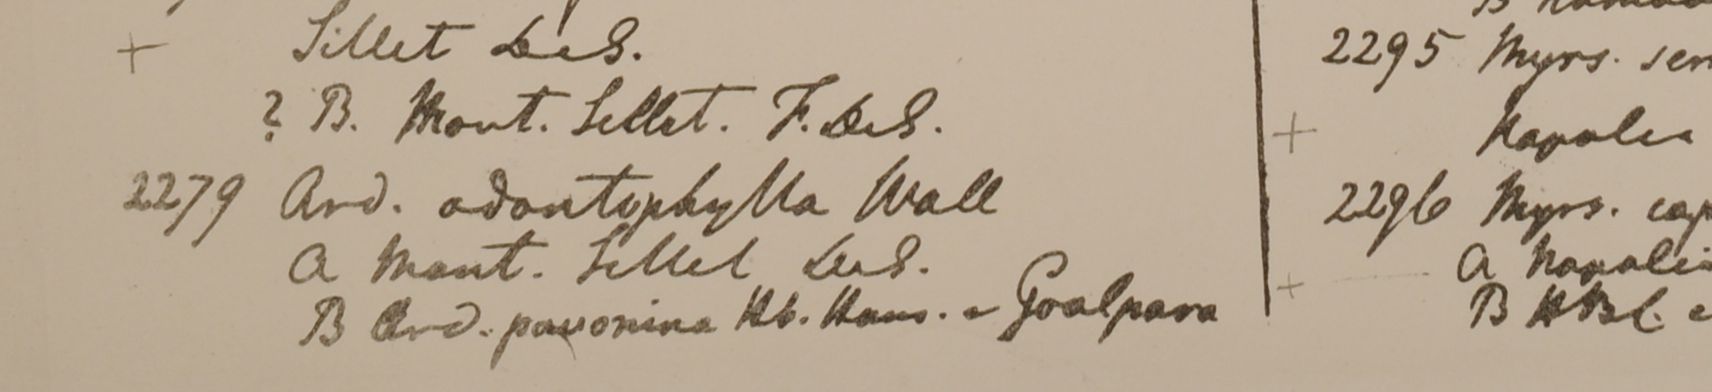 + Sillet DeS.
? B. Mont. Sillet. F. DeS.
2279 Ard. odontophylla Wall
A Mont. Sillet DeS.
B Ard. pavonina Hb. Ham. e Goalpara
2295 Myrs. sem
+ Napalia
2296 Myrs. cap
A Napalia
+ B HBC. e